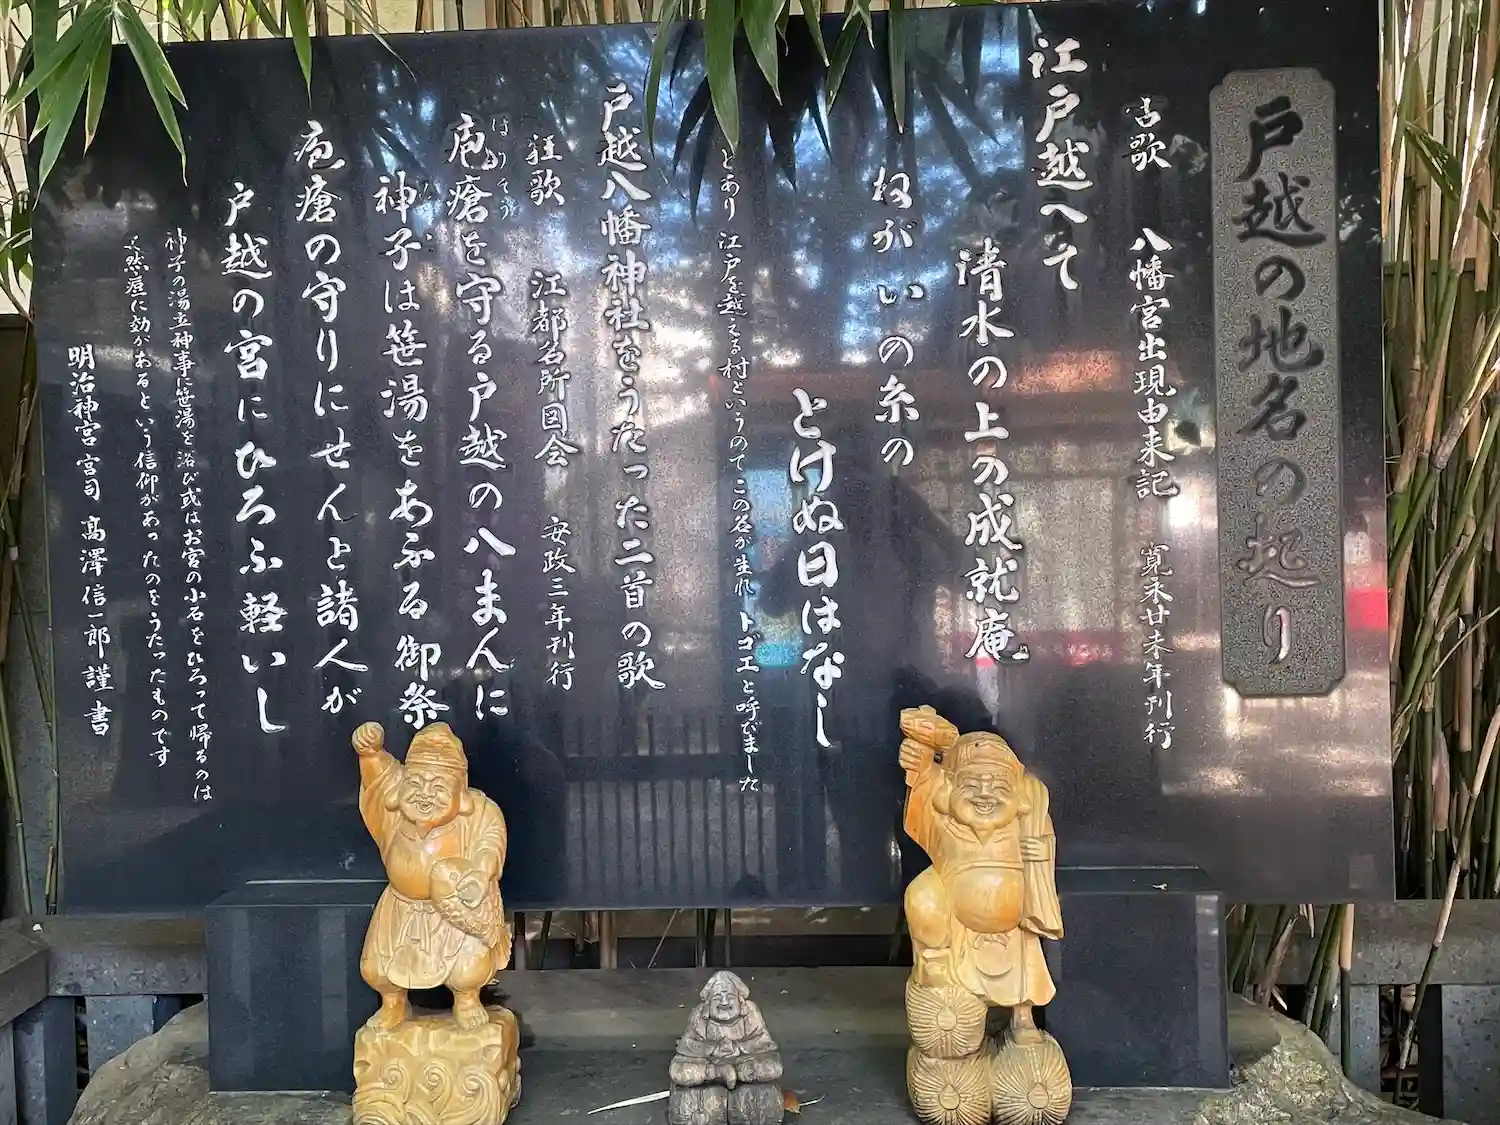 戸越の地名の起り
古歌 八幡宮出現由来記 寛永廿未年刊行
江戸越へて
清水の上の成就庵
ねがいの糸の
とけぬ日はなし
とあり 江戸を越える村というのでこの名が生れ トゴエと呼びました
戸越八幡神社をうたった二首の歌
狂歌 江都名所図会 安政三年刊行
疱瘡を守る戸越の八まんに
神子は笹湯をあふる御祭
疱瘡の守りにせんと諸人が
戸越の宮にひろふ軽いし
神子の湯立神事に笹湯を浴び或はお宮の小石をひろって帰るのは
天然痘に効があるという信仰があったのをうたったものです
明治神宮 宮司 高澤信一郎 謹書